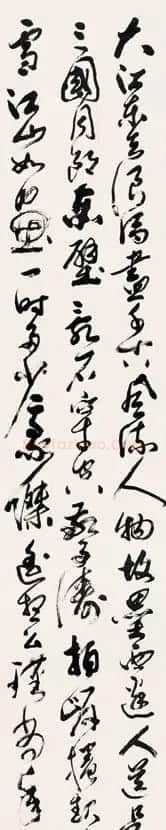 大江東去浪淘盡千古風流人物故壘西邊人道是
三國周郎赤壁亂石穿空驚濤拍岸捲起
雪江山如畫一時多少豪傑遙想公瑾當年